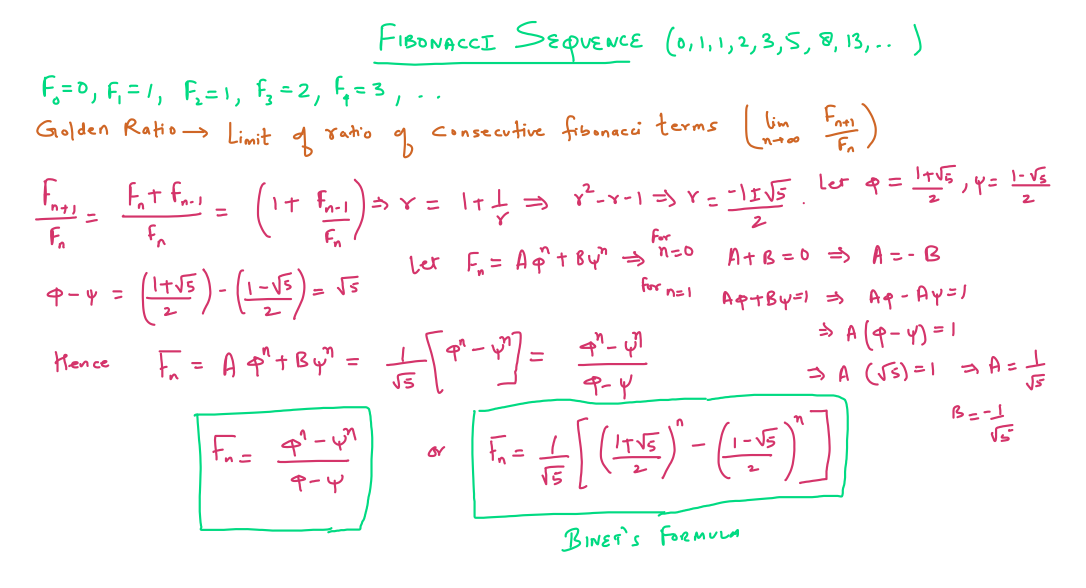 FIBONACCI SEQUENCE (0,1,1,2,3,5,8,13,.. )
F₀=0, F₁=1, F₂=1, F₃=2, F₄=3, ...
Golden Ratio → Limit of ratio of consecutive fibonacci terms ( lim n→∞ Fₙ₊₁/Fₙ )
Fₙ₊₁/Fₙ = (Fₙ + Fₙ₋₁)/Fₙ = (1 + Fₙ₋₁/Fₙ) ⇒ r = 1 + 1/r ⇒ r² - r - 1 ⇒ r = (-1±√5)/2 . Let φ = (1+√5)/2 , ψ = (1-√5)/2
Let Fₙ = Aφⁿ + Bψⁿ ⇒ for n=0 A + B = 0 ⇒ A = - B
φ-ψ = ((1+√5)/2) - ((1-√5)/2) = √5
for n=1 Aφ+Bψ=1 ⇒ Aφ - Aψ = 1
⇒ A(φ-ψ) = 1
Hence Fₙ = A φⁿ + Bψⁿ = 1/√5 [φⁿ - ψⁿ] = (φⁿ - ψⁿ)/(φ-ψ)
⇒ A (√5) = 1 ⇒ A = 1/√5
B = -1/√5
Fₙ = (φⁿ - ψⁿ)/(φ-ψ) or Fₙ = 1/√5 [ ((1+√5)/2)ⁿ - ((1-√5)/2)ⁿ ]
BINET'S FORMULA